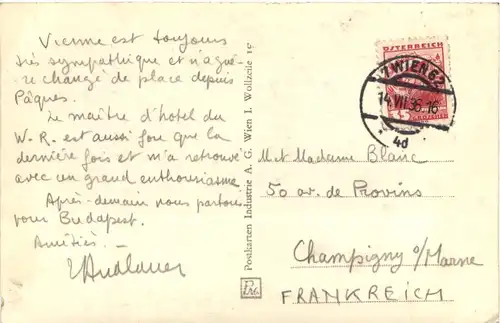 Vienne est toujours
très sympathique et n'a guè-
re changé de place depuis
Pâques.
Le maître d'hôtel du
W. R. est aussi fou que la
dernière fois et m'a retrouvé
avec un grand enthousiasme.
Après-demain nous partons
pour Budapest.
Amitiés. –
Postkarten Industrie A. G. Wien I. Wollzeile 15
ÖSTERREICH
7 WIEN 62
14.VII.36.16
4d
M. et Madame Blanc
50 av. de Provins
Champigny s/Marne
FRANKREICH